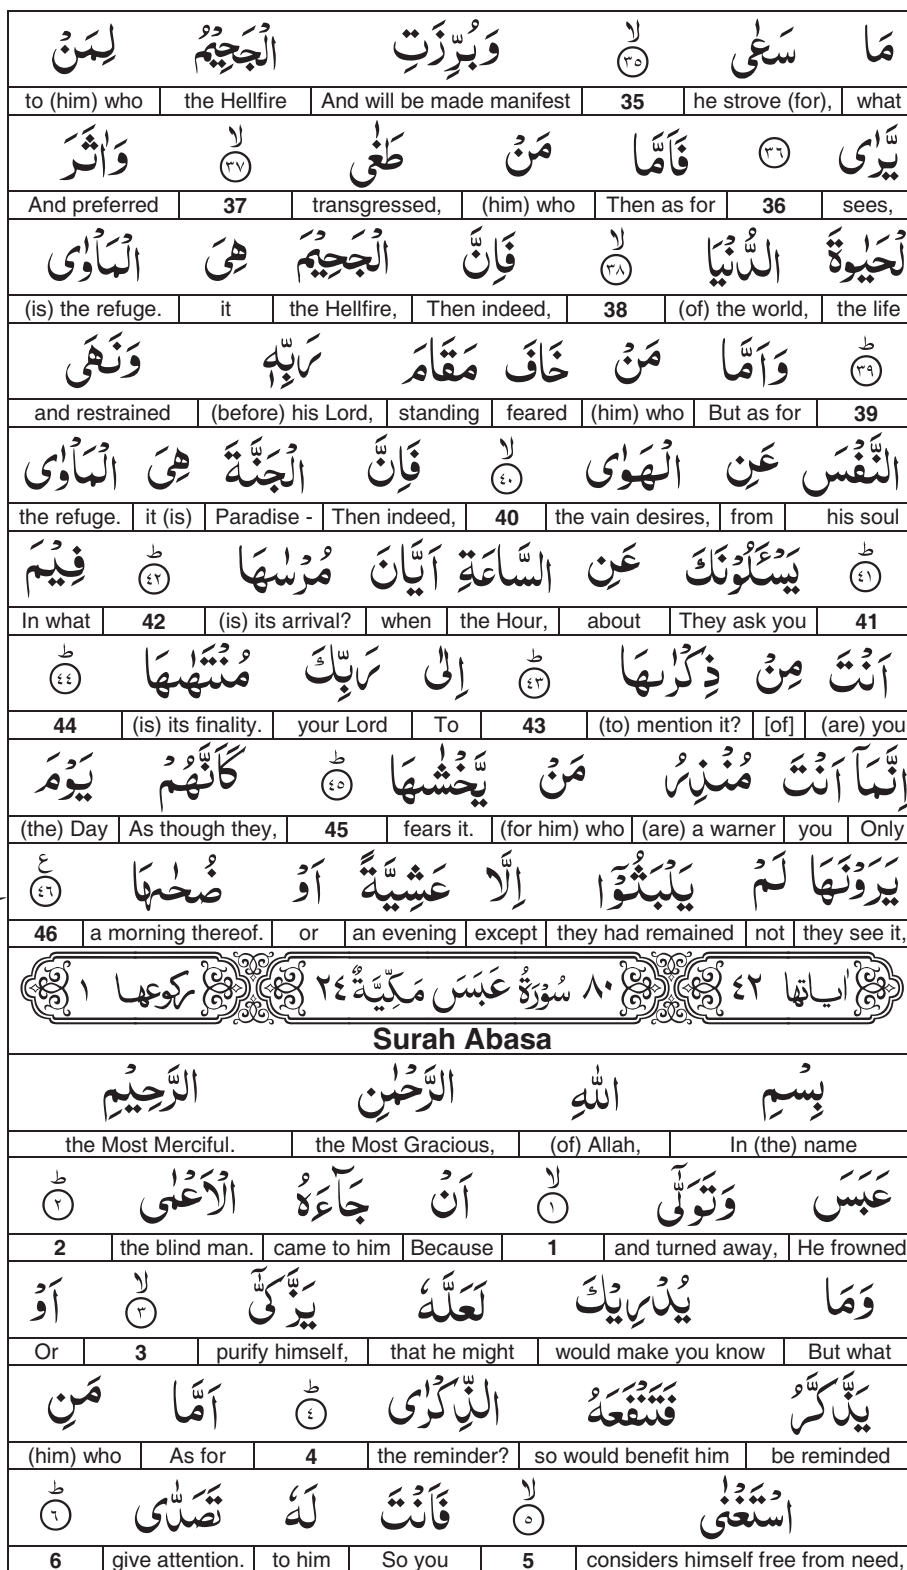 مَا سَعٰى ۙ ٣٥ وَبُرِّزَتِ الْجَحِيْمُ لِمَنْ
what | he strove (for), | 35 | And will be made manifest | the Hellfire | to (him) who
يَّرٰى ٣٦ فَاَمَّا مَنْ طَغٰى ۙ ٣٧ وَاٰثَرَ
sees, | 36 | Then as for | (him) who | transgressed, | 37 | And preferred
لْحَيٰوةَ الدُّنْيَا ۙ ٣٨ فَاِنَّ الْجَحِيْمَ هِيَ الْمَاْوٰى
the life | (of) the world, | 38 | Then indeed, | the Hellfire, | it | (is) the refuge.
ؕ ٣٩ وَاَمَّا مَنْ خَافَ مَقَامَ رَبِّهٖ وَنَهَى
39 | But as for | (him) who | feared | standing | (before) his Lord, | and restrained
النَّفْسَ عَنِ الْهَوٰى ۙ ٤٠ فَاِنَّ الْجَنَّةَ هِيَ الْمَاْوٰى
his soul | from | the vain desires, | 40 | Then indeed, | Paradise - | it (is) | the refuge.
ؕ ٤١ يَسْـَٔلُوْنَكَ عَنِ السَّاعَةِ اَيَّانَ مُرْسٰىهَا ؕ ٤٢ فِيْمَ
41 | They ask you | about | the Hour, | when | (is) its arrival? | 42 | In what
اَنْتَ مِنْ ذِكْرٰىهَا ؕ ٤٣ اِلٰى رَبِّكَ مُنْتَهٰىهَا ؕ ٤٤
(are) you | [of] | (to) mention it? | 43 | To | your Lord | (is) its finality. | 44
اِنَّمَاۤ اَنْتَ مُنْذِرُ مَنْ يَّخْشٰىهَا ؕ ٤٥ كَاَنَّهُمْ يَوْمَ
Only | you | (are) a warner | (for him) who | fears it. | 45 | As though they, | (the) Day
يَرَوْنَهَا لَمْ يَلْبَثُوْۤا اِلَّا عَشِيَّةً اَوْ ضُحٰىهَا ع ٤٦
they see it, | not | they had remained | except | an evening | or | a morning thereof. | 46
اٰياتها ٤٢ ٨٠ سُوْرَةُ عَبَسَ مَكِّيَّةٌ ٢٤ ركوعها ١
Surah Abasa
بِسْمِ اللّٰهِ الرَّحْمٰنِ الرَّحِيْمِ
In (the) name | (of) Allah, | the Most Gracious, | the Most Merciful.
عَبَسَ وَتَوَلّٰىۤ ۙ ١ اَنْ جَآءَهُ الْاَعْمٰى ؕ ٢
He frowned | and turned away, | 1 | Because | came to him | the blind man. | 2
وَمَا يُدْرِيْكَ لَعَلَّهٗ يَزَّكّٰىۤ ۙ ٣ اَوْ
But what | would make you know | that he might | purify himself, | 3 | Or
يَذَّكَّرُ فَتَنْفَعَهُ الذِّكْرٰى ؕ ٤ اَمَّا مَنِ
be reminded | so would benefit him | the reminder? | 4 | As for | (him) who
اسْتَغْنٰى ۙ ٥ فَاَنْتَ لَهٗ تَصَدّٰى ؕ ٦
considers himself free from need, | 5 | So you | to him | give attention. | 6